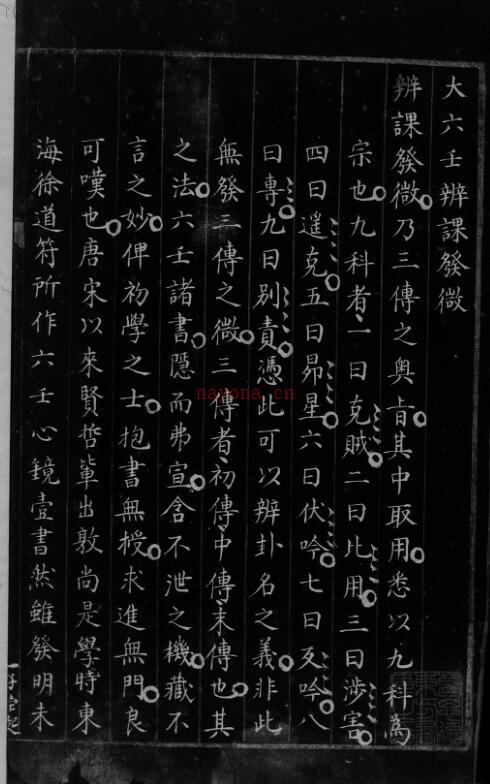 大六壬辨課發微
辨課發微乃三傳之奧旨其中取用悉以九科為
宗也九科者一曰克賊二曰比用三曰涉害
四曰遥克五曰昴星六曰伏吟七曰反吟八
曰專九曰別責憑此可以辨卦名之義非此
無發三傳之微三傳者初傳中傳末傳也其
之法六壬諸書隠而弗宣含不泄之機藏不
言之妙俾初學之士抱書無授求進無門良
可嘆也唐宋以來賢哲輩出敦尚是學時東
海徐道符所作六壬心鏡壹書然雖發明未
nayona.cn